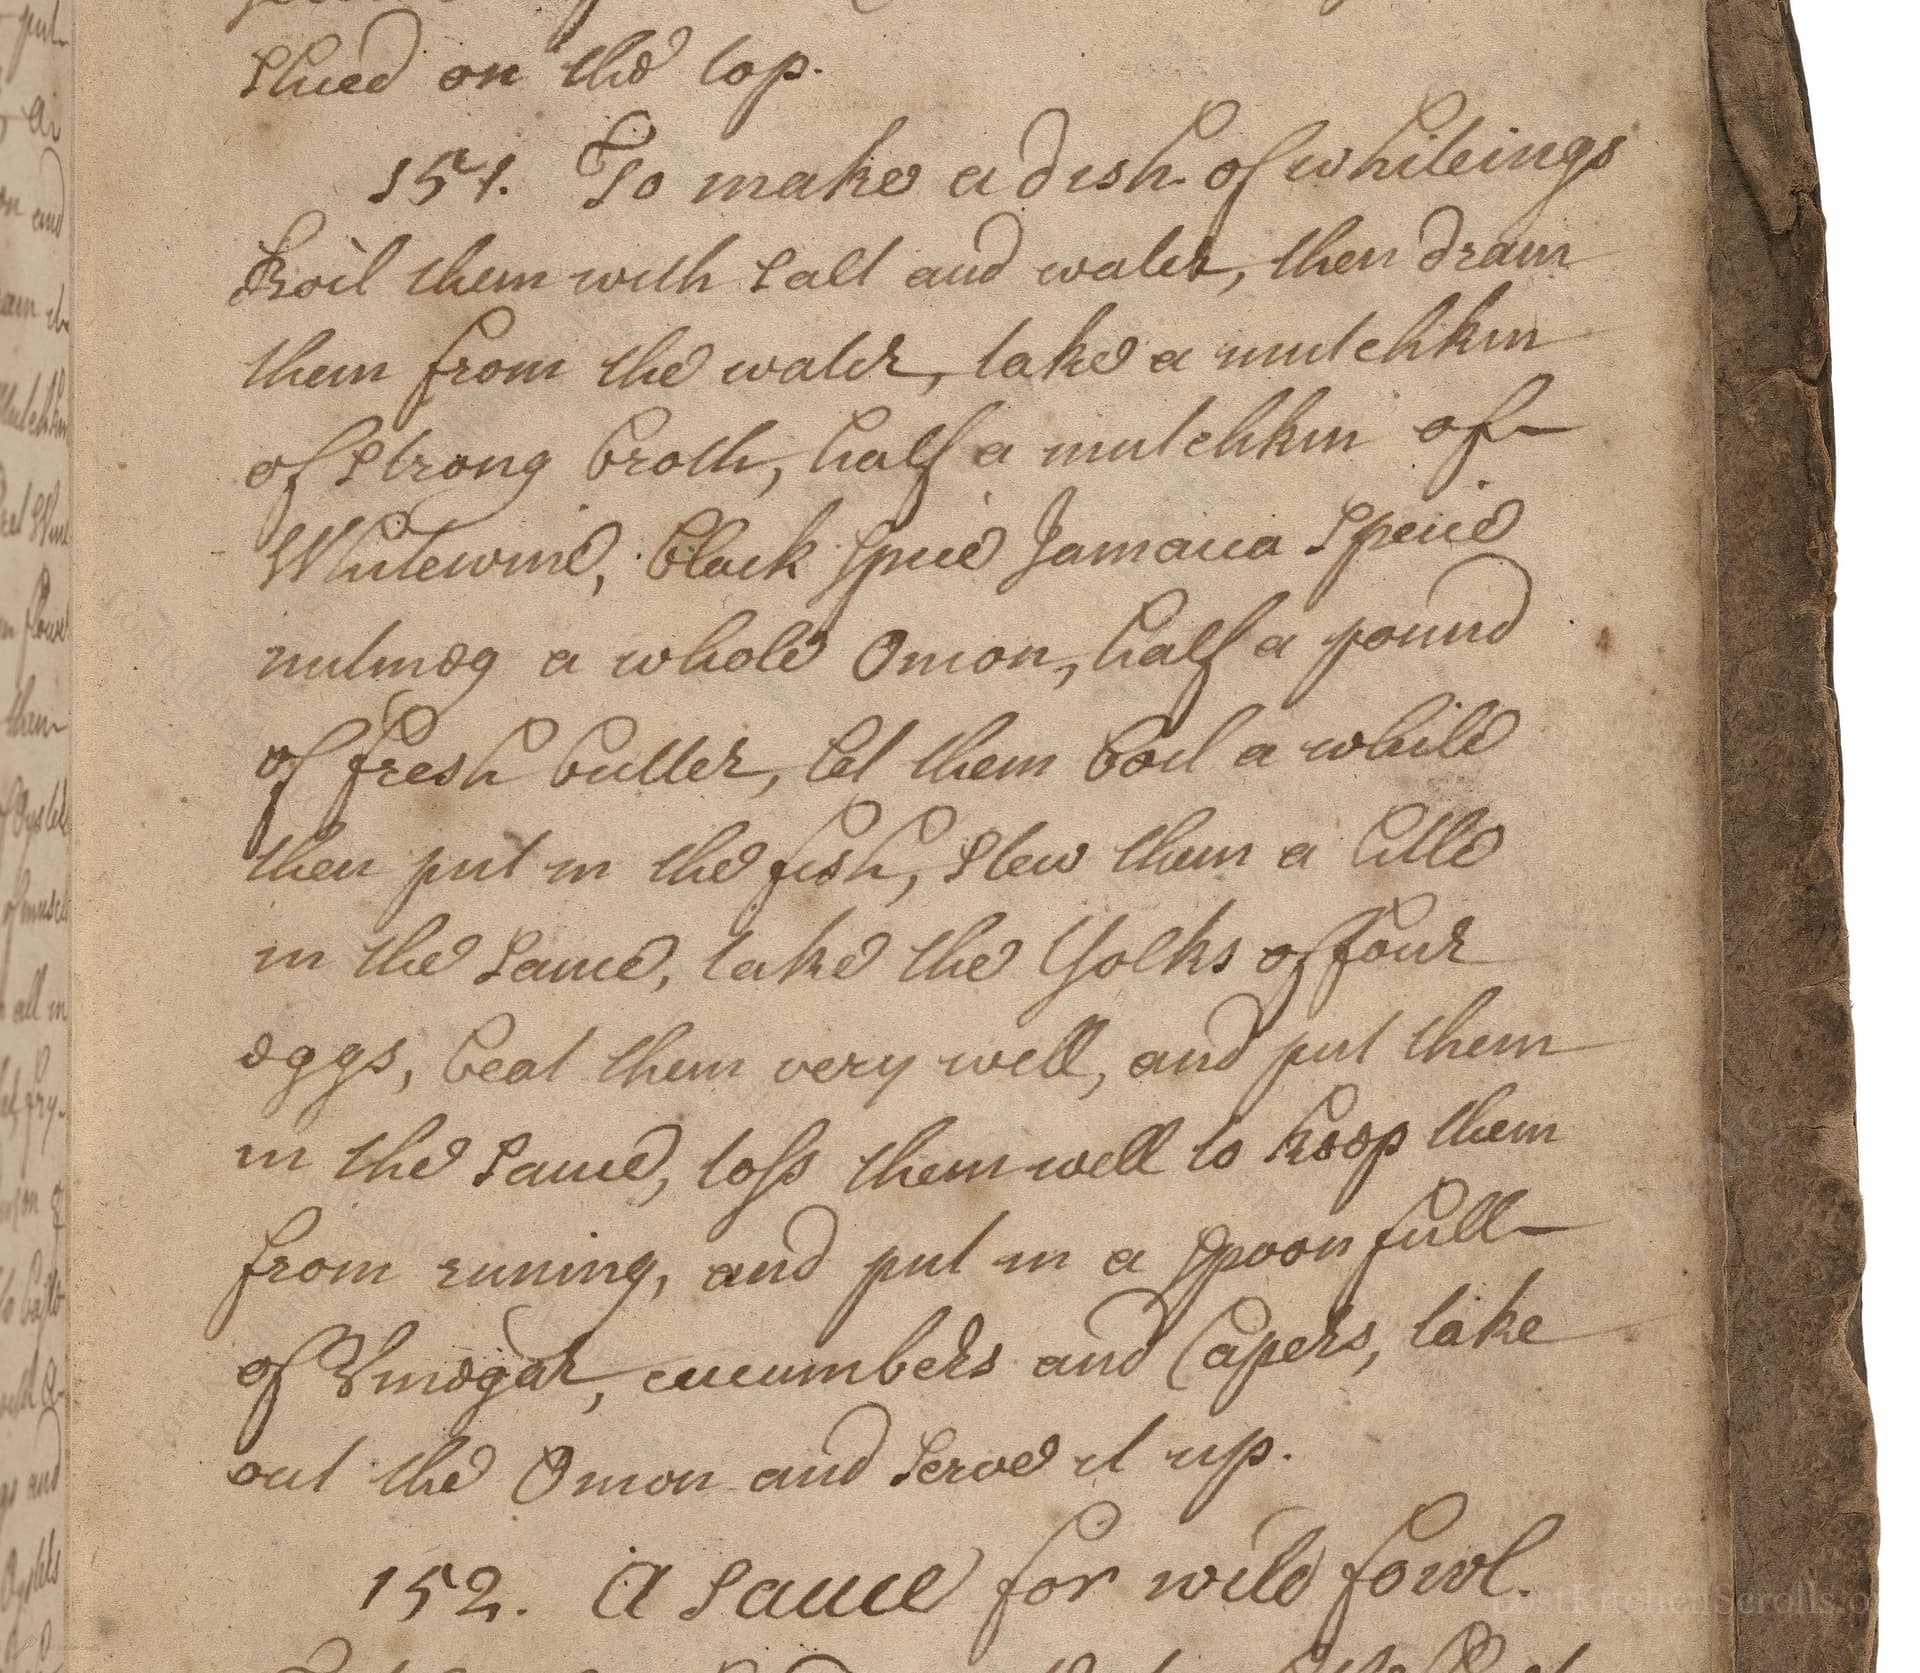 sliced on the top.
151. To make a dish of whiteings
Boil them with salt and water, then drain
them from the water, take a mutchkin
of strong broth, half a mutchkin of
Whitewine, black spice Jamaica Speice
nutmeg a whole Onion, half a pound
of fresh butter, let them boil a while
then put in the fish, stew them a little
in the sauce, take the Yolks of four
eggs, beat them very well, and put them
in the sauce, toss them well to keep them
from runing, and put in a spoonfull
of Vinegar, cucumbers and Capers, take
out the Onion and serve it up.
152. A sauce for wild fowl.
LostKitchenScrolls.o